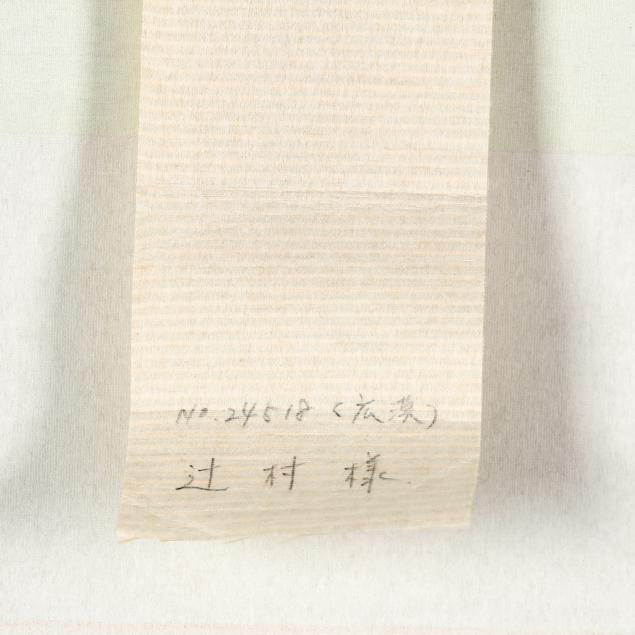 No.24518(広漠)
辻村様